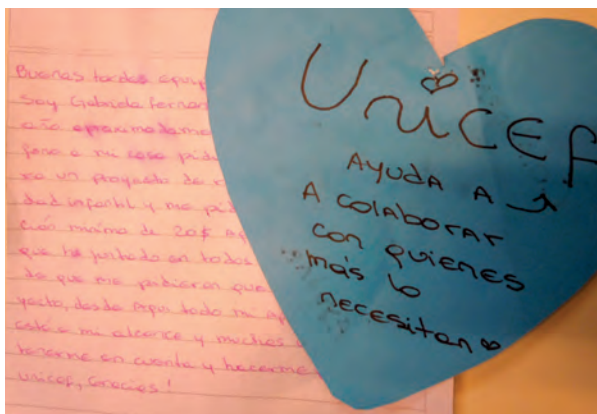 Buenas tardes
Soy Gabriela
año aproximadame
fono a mi casa
un proyecto de
dad infantil y me
ción mínimo de 20$
que he juntado en todos
de que me pidieron que
yecto, desde aquí todo mi
esté a mi alcance y muchas
tenerme en cuenta y hacerme
unicef, Gracias!
Unicef
AYUdA A
A COLABORAR
CON QUIENES
más lo
necesitan